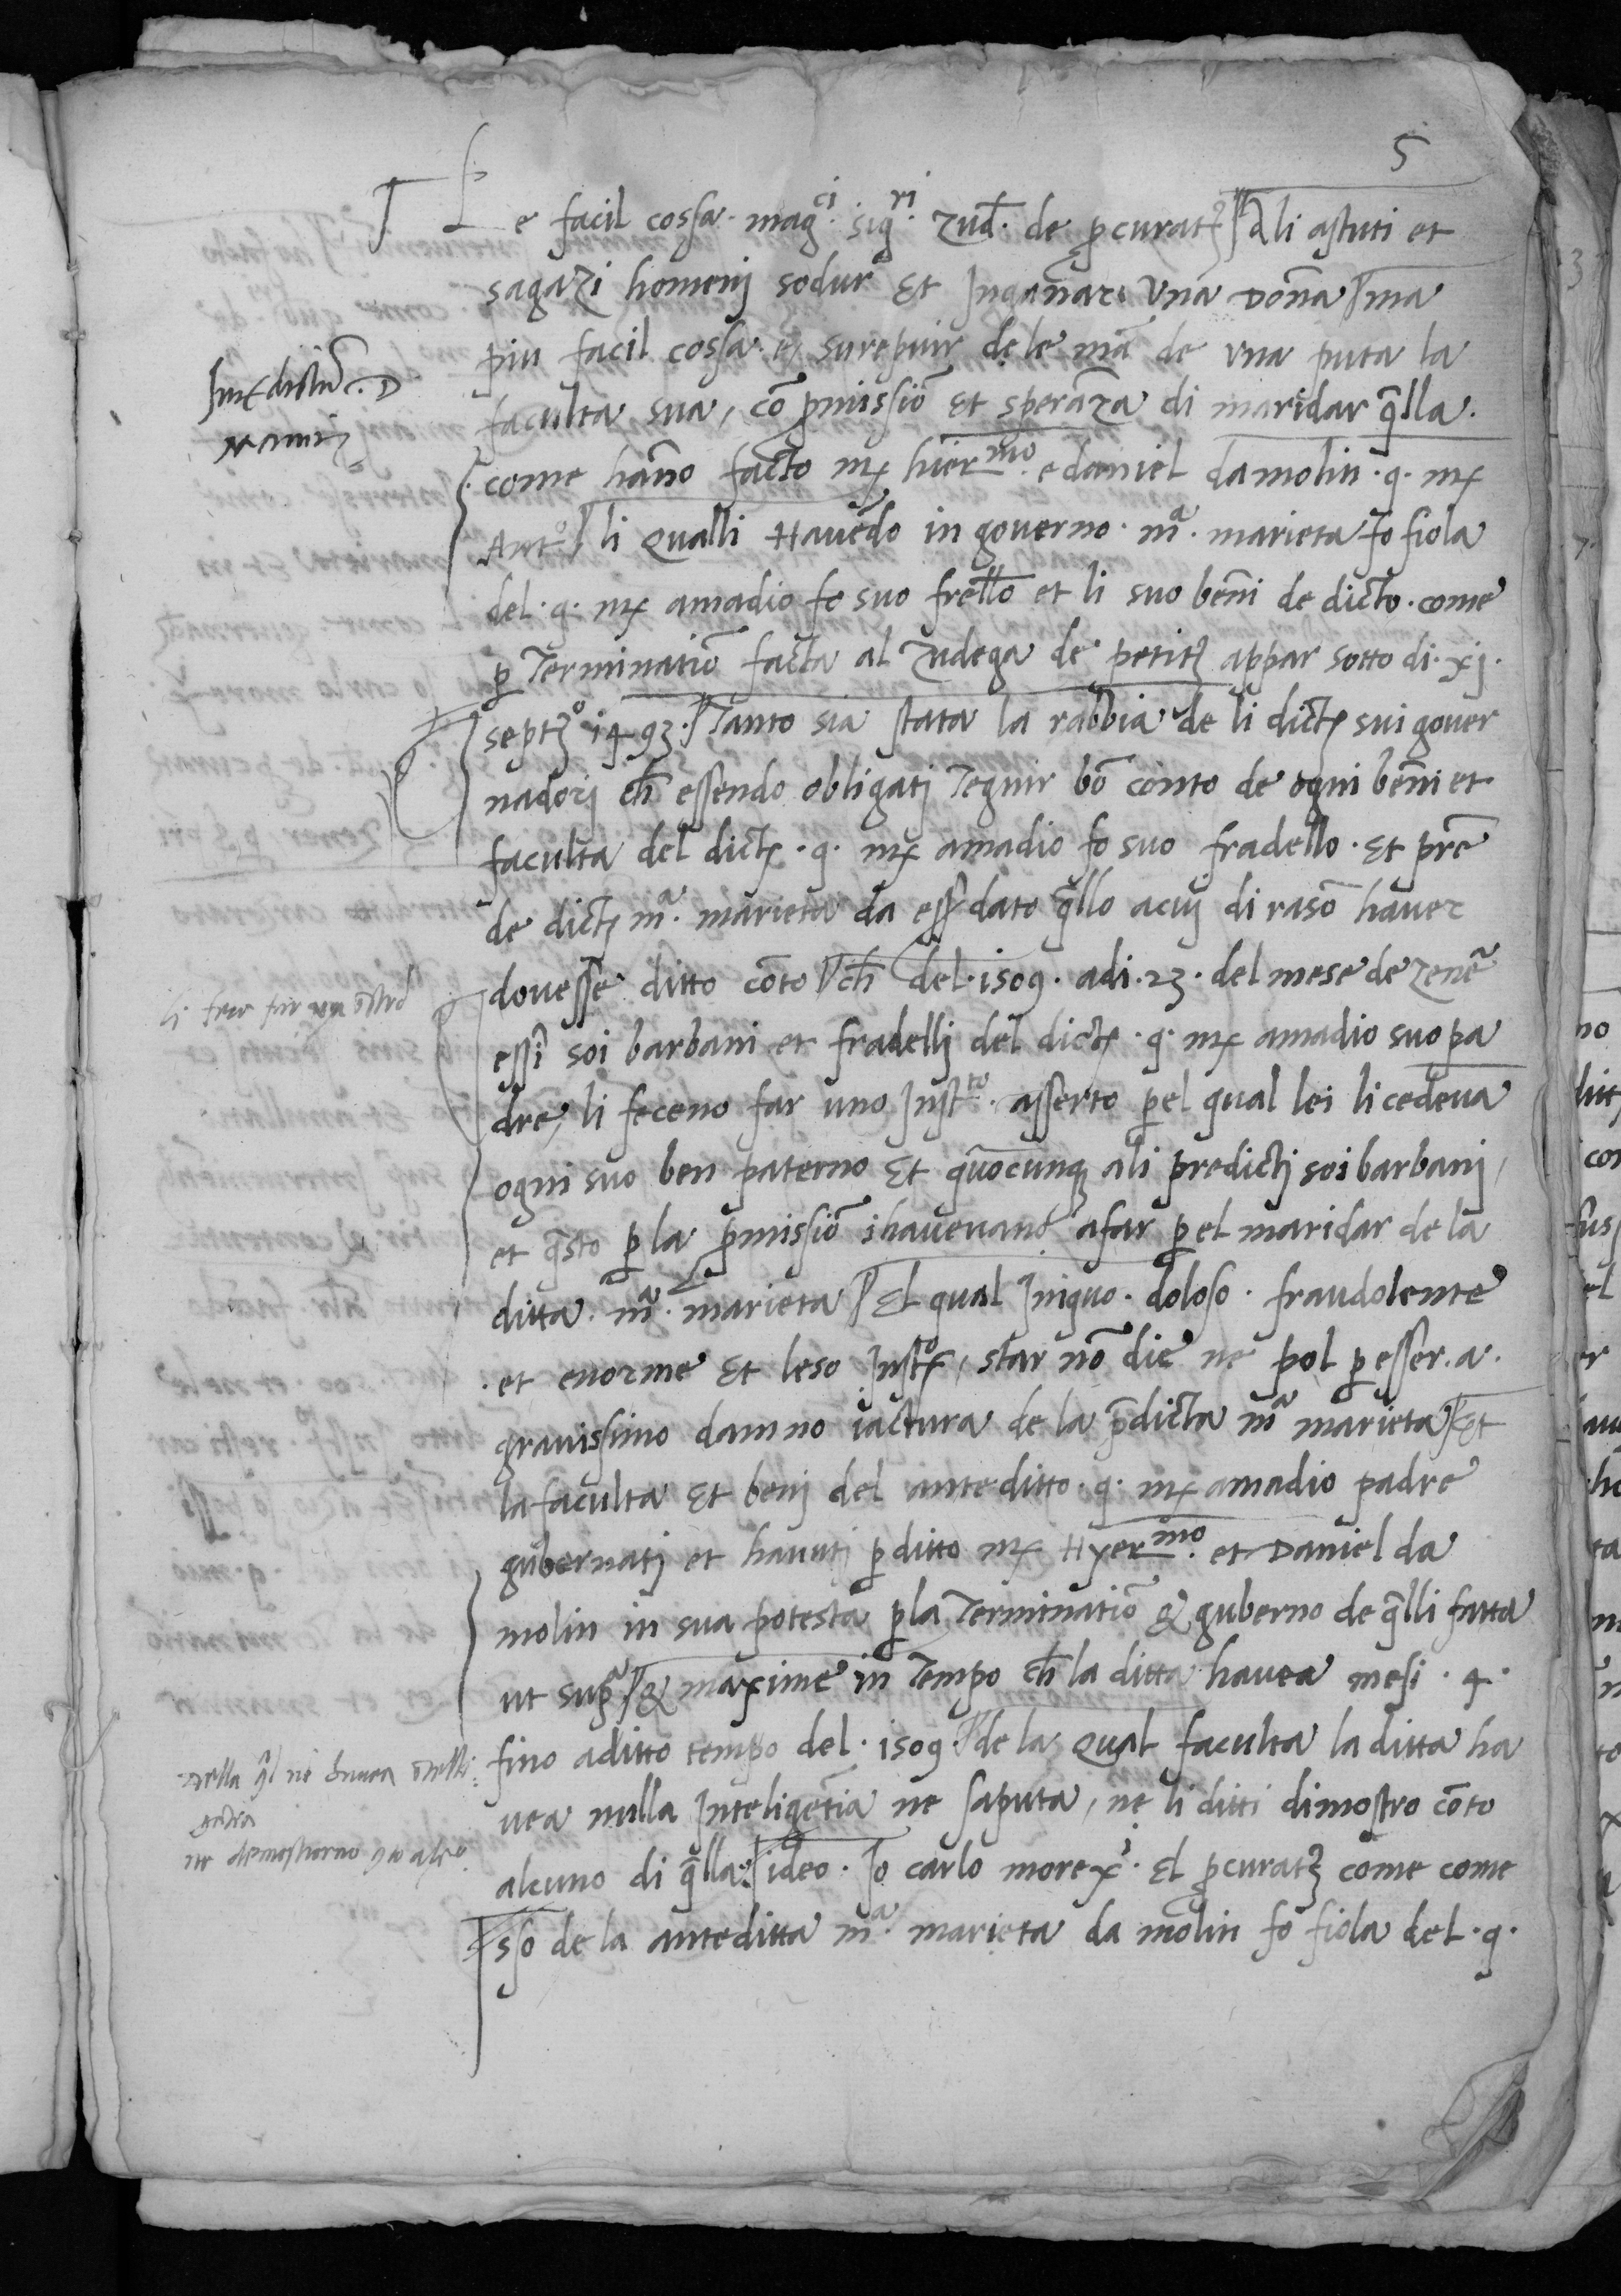 5
Le facil cossa. mag.ci sig.ri Zud. de pcurat3 A li astuti et
sagazi homenj sodur Et Ingañar Una Dona ma
piu facil cossa. e, surepuir de le mã de una puta la
faculta sua, cõ pmissiõ Et sperãza di maridar qlla.
come hãno facto mx hiermo. e daniel da molin. q. mx
Anto li qualli Havẽdo in governo. mª. marieta fo fiola
del. q. mx amadio fo suo frello et li suo beni de dicto. come
p Terminatiõ facta al Zudega de petit3 appar sotto di. xj.
sept3º 1493. Tanto sia stata la rabbia de li dictj sui gover
nadorj ch essendo obligatj Tegnir bõ conto de ogni beni et
faculta del dictx. q. mx amadio fo suo fradello. Et pre
de dictx mª. marieta da ess dato qllo a cuj di rasõ haver
dovesse ditto cõto ch del. 1509. adi. 23. del mese de Zenẽ
essi soi barbani et fradellj del dictx. q. mx amadio suo pa
dre, li feceno far uno Instto. asserto pel qual lei li cedeva
ogni suo ben paterno Et quocunq ali predictj soi barbanj,
et qsto p la pmissiõ i havevano a far p el maridar de la
ditta. mª. marieta El qual Iniquo. doloso. fraudolente
. et enorme Et leso Instº, star nõ die ne pol p esser. a.
gravissimo damno iactura de la pdicta mª marieta Et
la faculta Et benj del anteditto. q. mx amadio padre
gubernatj et havutj p ditto mx Hyermo. et Daniel da
molin in sua potesta p la Terminatiõ & guberno de qlli fatta
ut supª & maxime in Tempo ch la ditta havea mesi. 4.
fino a ditto tempo del. 1509 de la qual faculta la ditta ha
vea nulla Inteligẽtia ne saputa, ne li ditti dimostro cõto
alcuno di qlla. ideo. Io carlo morex. El pcurat3 come come
sso de la anteditta mª. marieta da molin fo fiola del. q.
li fece far un
nella ql ne havea
ne demostrorno